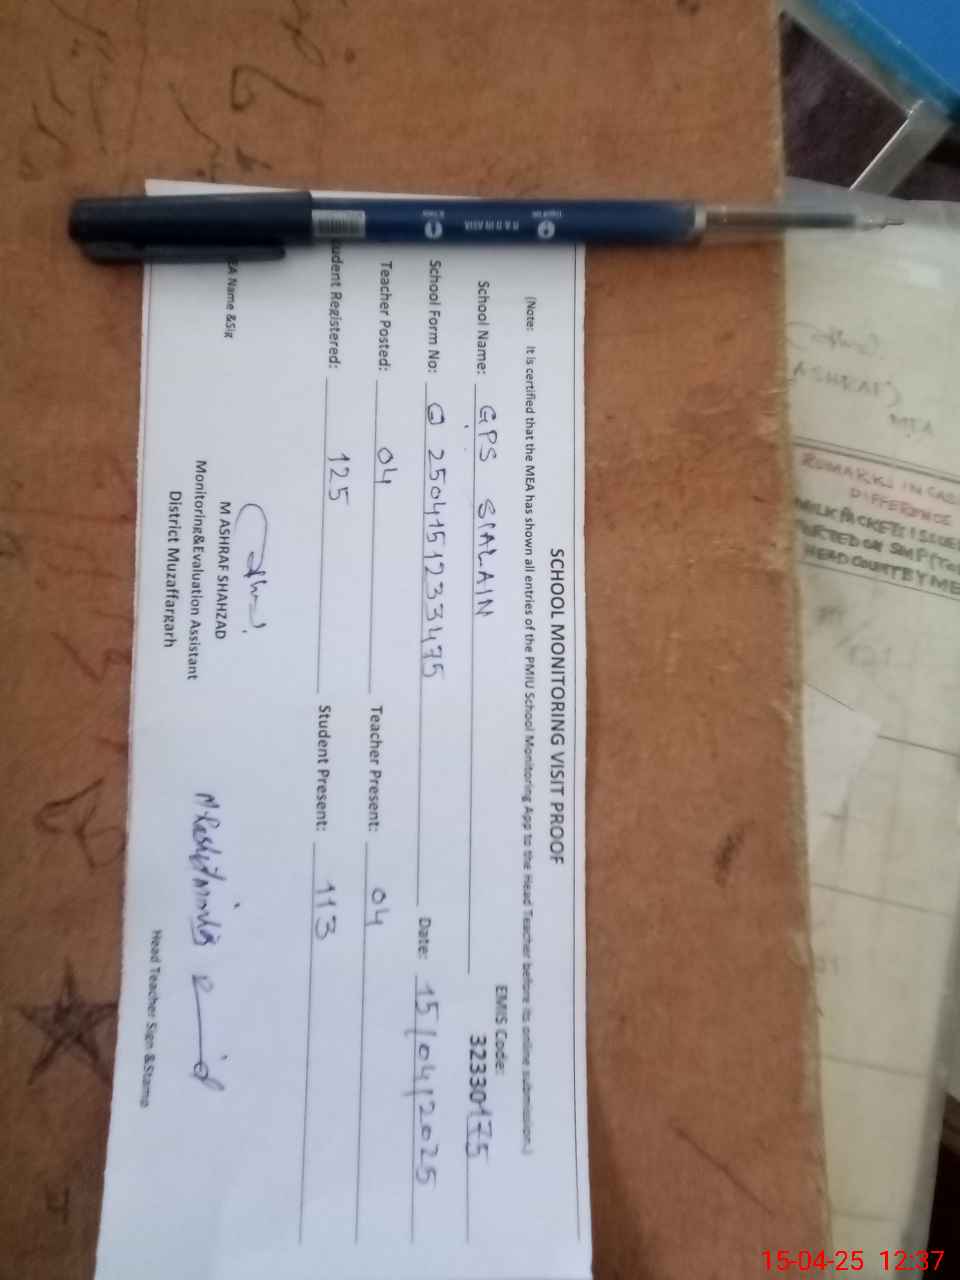 SCHOOL MONITORING VISIT PROOF
(Note: It is certified that the MEA has shown all entries of the PMIU School Monitoring App to the Head Teacher before its online submission.)
EMIS Code:
School Name: GPS SIALAIN 32330175
School Form No: 2504151233475 Date: 15/04/2025
Teacher Posted: 04 Teacher Present: 04
udent Registered: 125 Student Present: 113
EA Name &Sig
M ASHRAF SHAHZAD
Monitoring&Evaluation Assistant
District Muzaffargarh
Head Teacher Sign &Stamp
REMARKS IN CASE
DIFFERENCE
MILK PACKETS ISSUED
HEADCOUNT BY ME
15-04-25 12:37